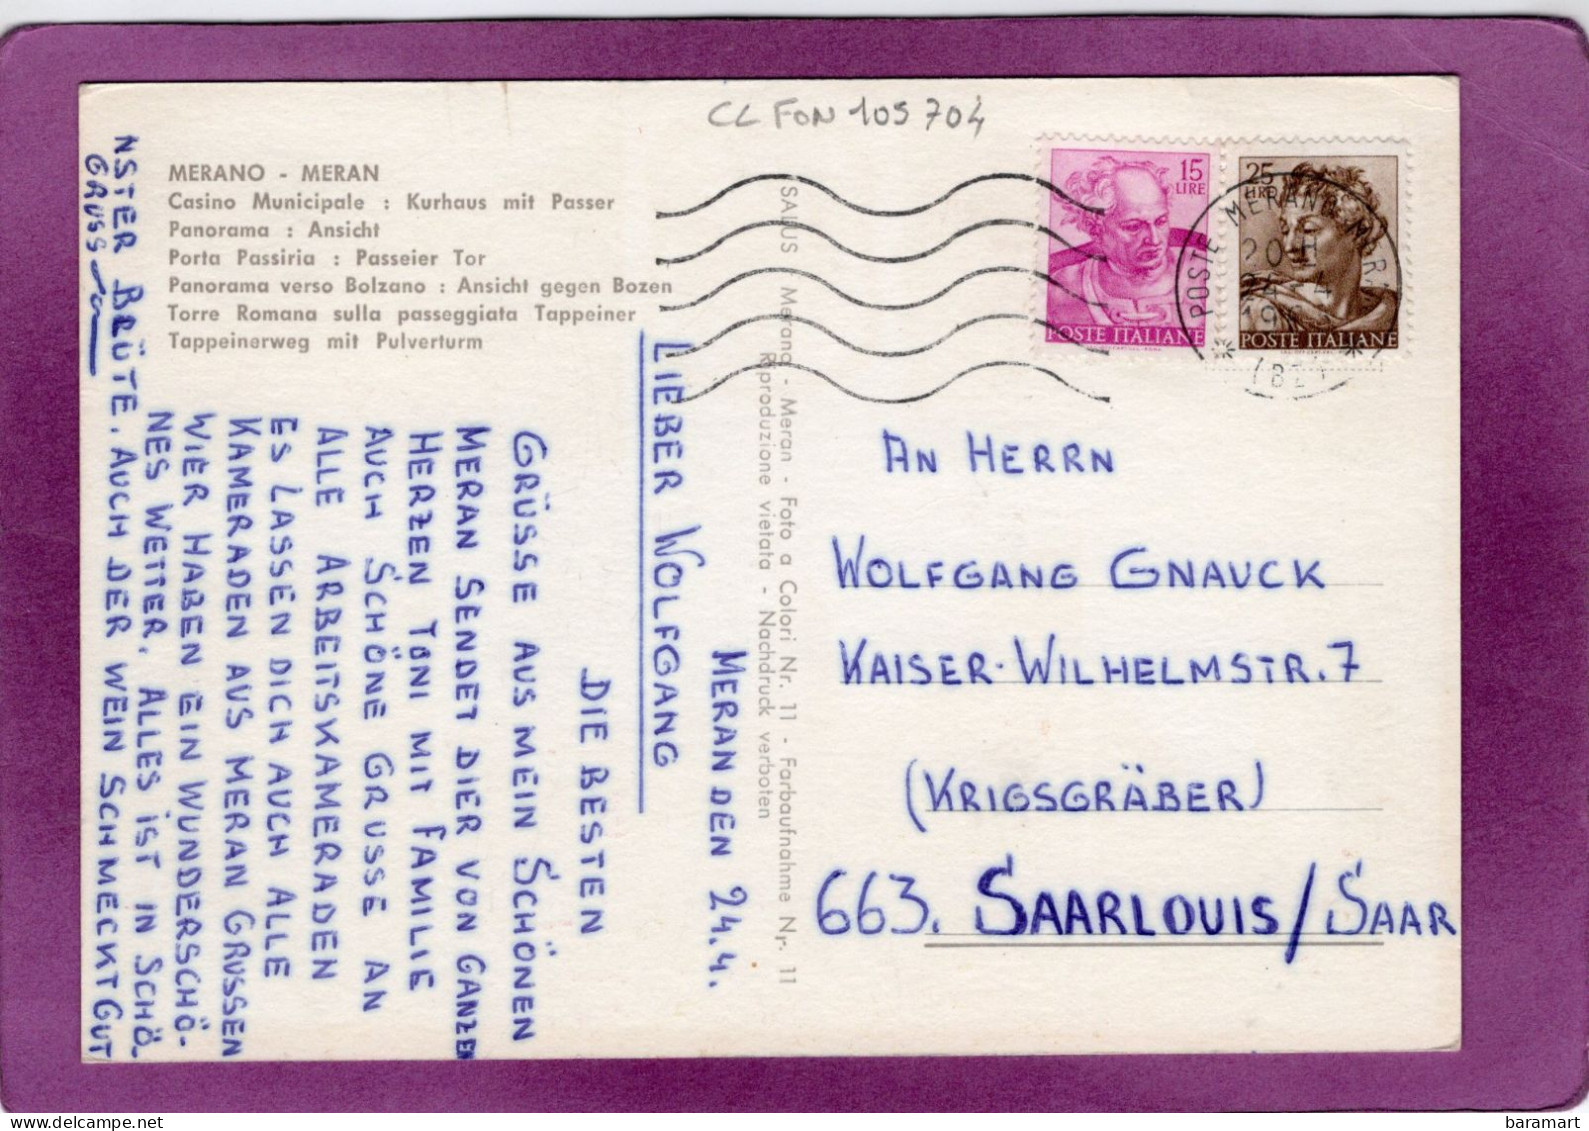 CL FON 105 704
MERANO - MERAN
Casino Municipale : Kurhaus mit Passer
Panorama : Ansicht
Porta Passiria : Passeier Tor
Panorama verso Bolzano : Ansicht gegen Bozen
Torre Romana sulla passeggiata Tappeiner
Tappeinerweg mit Pulverturm
SALUS Merano - Meran - Foto a Colori Nr. 11 - Farbaufnahme Nr. 11
Riproduzione vietata - Nachdruck verboten
15
LIRE
POSTE ITALIANE
25
LIRE
POSTE ITALIANE
POSTE MERANO MER
20 H
MERAN DEN 24.4.
LIEBER WOLFGANG
DIE BESTEN
GRÜSSE AUS MEIN SCHÖNEN
MERAN SENDET DIER VON GANZEN
HERZEN TONI MIT FAMILIE
AUCH SCHÖNE GRUSSE AN
ALLE ARBEITSKAMERADEN
ES LASSEN DICH AUCH ALLE
KAMERADEN AUS MERAN GRUSSEN
WIER HABEN EIN WUNDERSCHÖ-
NES WETTER. ALLES IST IN SCHÖ-
NSTER BRÜTE. AUCH DER WEIN SCHMECKT GUT
GRUSS
AN HERRN
WOLFGANG GNAUCK
KAISER-WILHELMSTR. 7
(KRIGSGRÄBER)
663. SAARLOUIS/SAAR
baramart